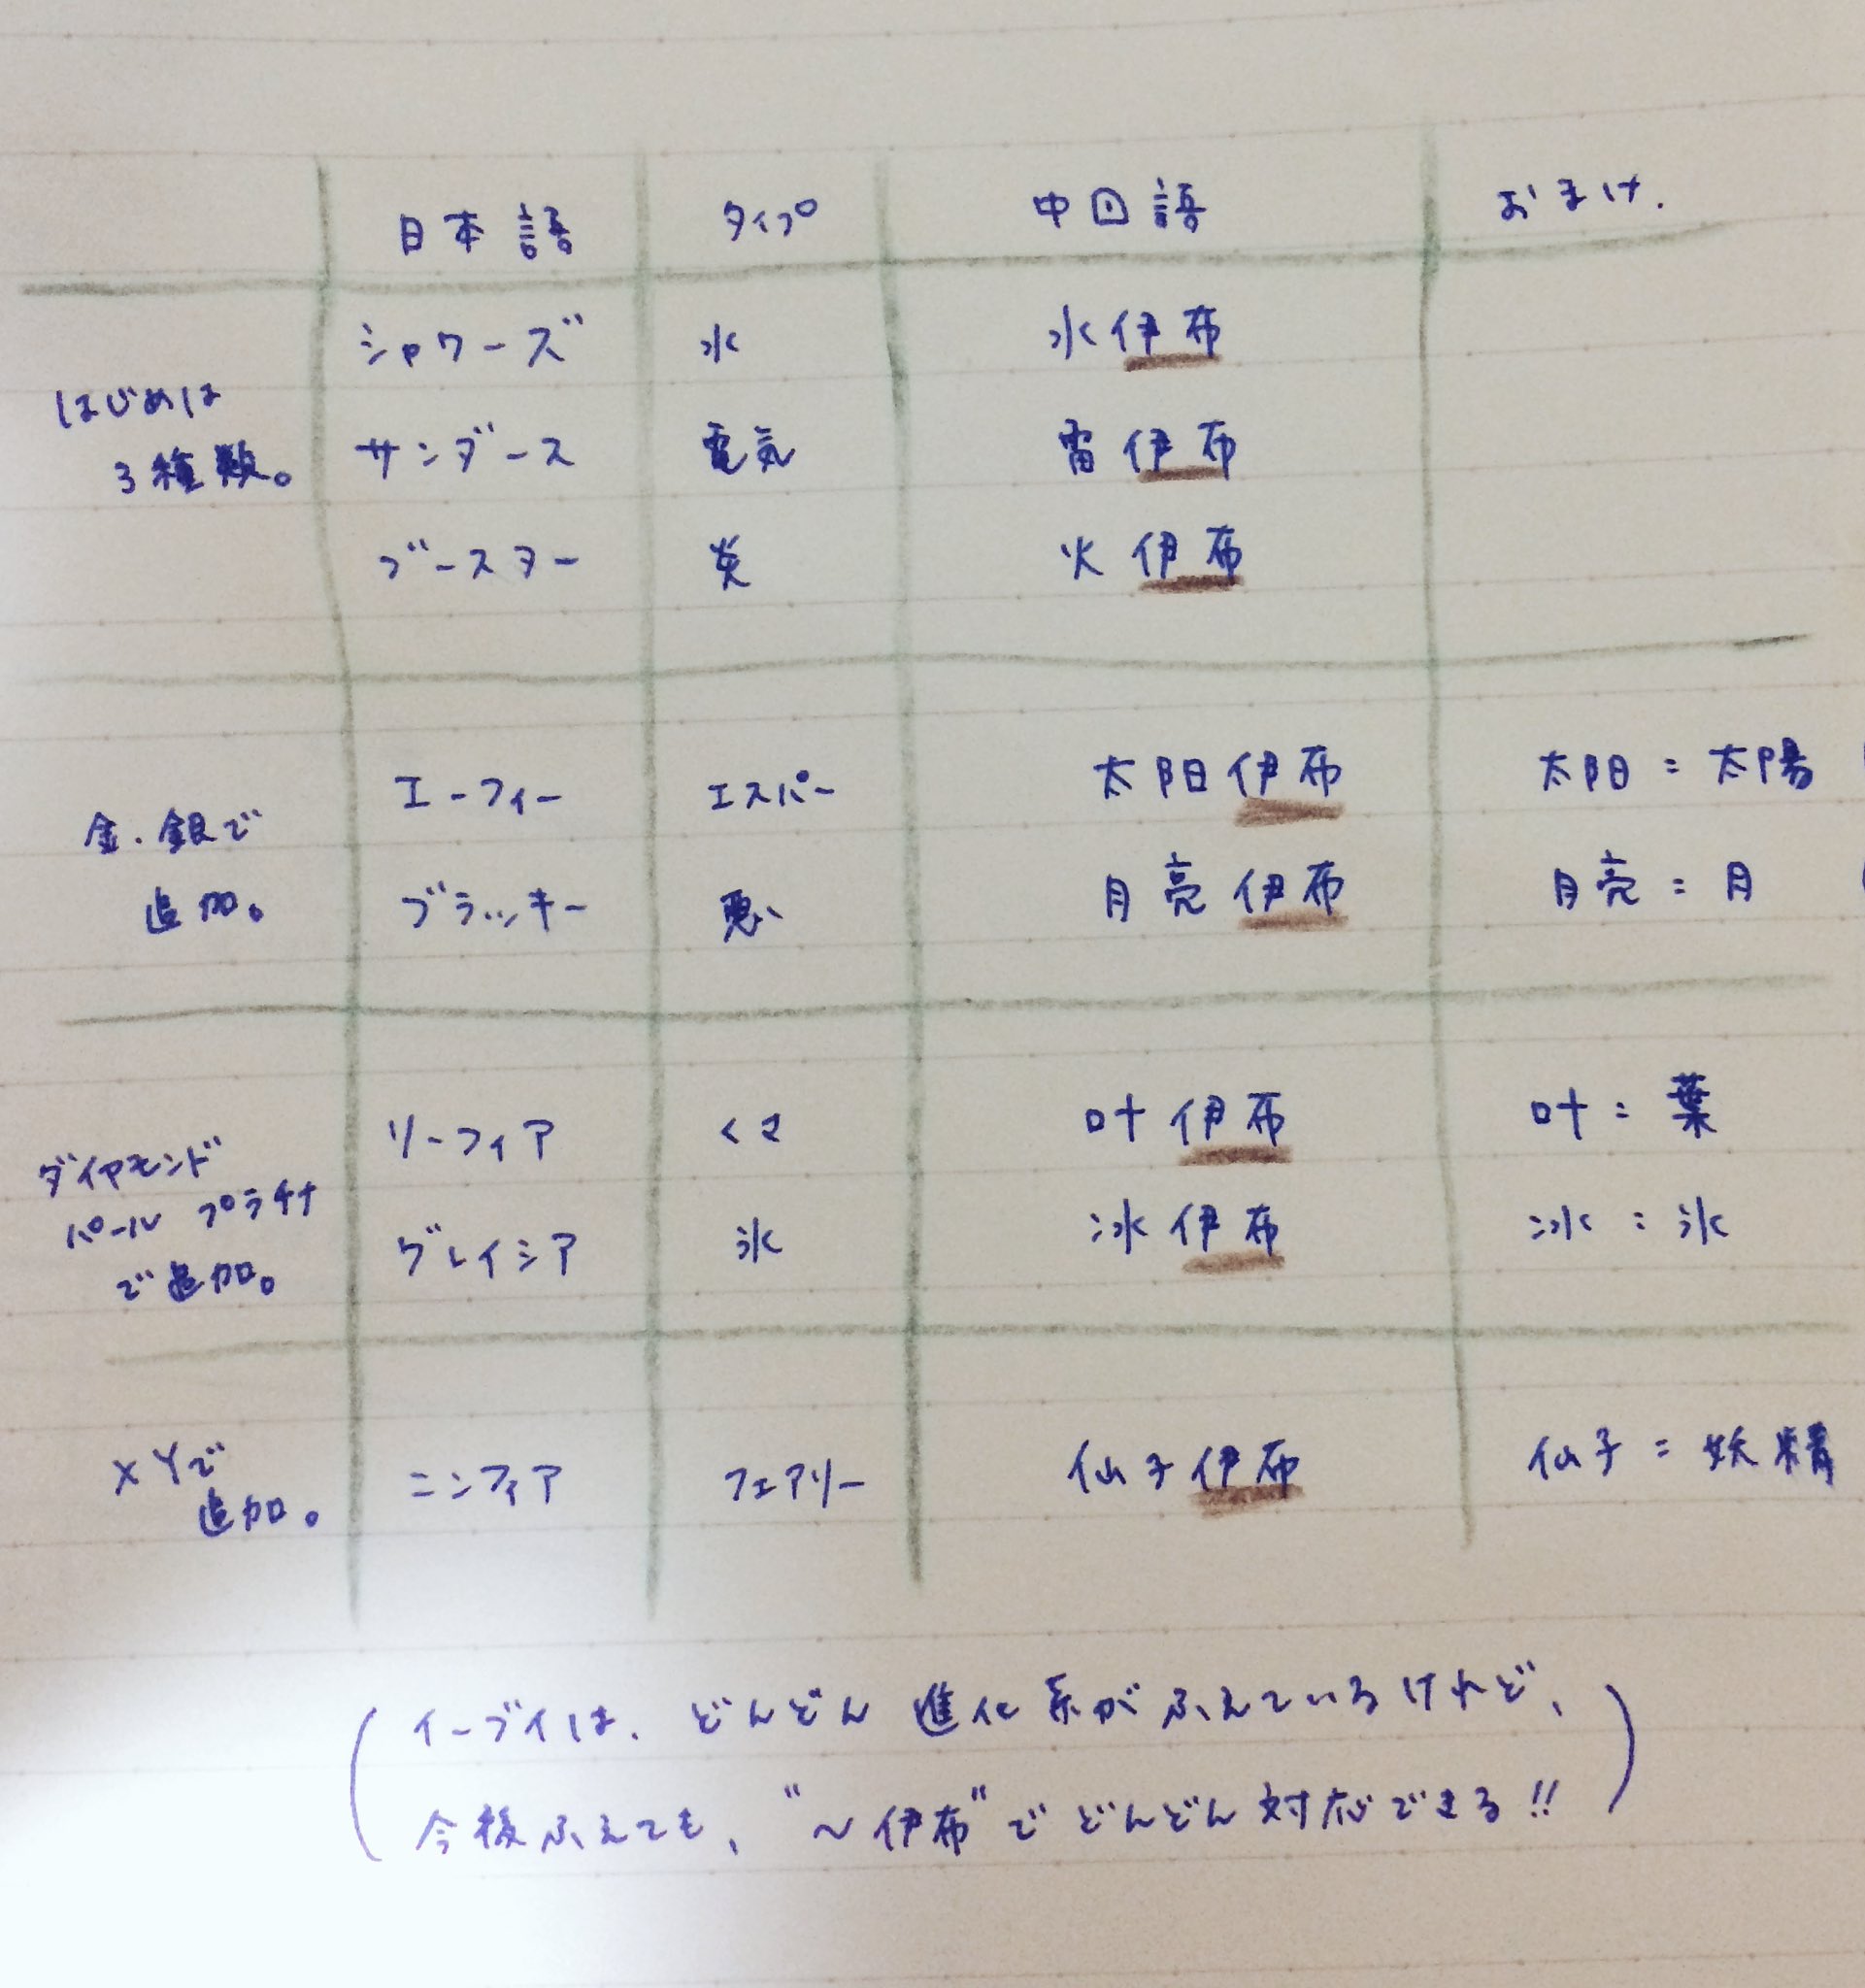 日本語 タイプ 中国語 おまけ.
はじめは
3種類。
シャワーズ 水 水伊布
サンダース 電気 雷伊布
ブースター 炎 火伊布
金・銀で
追加。
エーフィー エスパー 太阳伊布 太阳=太陽
ブラッキー 悪 月亮伊布 月亮=月
ダイヤモンド
パール プラチナ
で追加。
リーフィア くさ 叶伊布 叶=葉
グレイシア 氷 冰伊布 冰=氷
XYで
追加。
ニンフィア フェアリー 仙子伊布 仙子=妖精
(イーブイは、どんどん進化系がふえているけれど、
今後ふえても、"〜伊布"でどんどん対応できる!!)